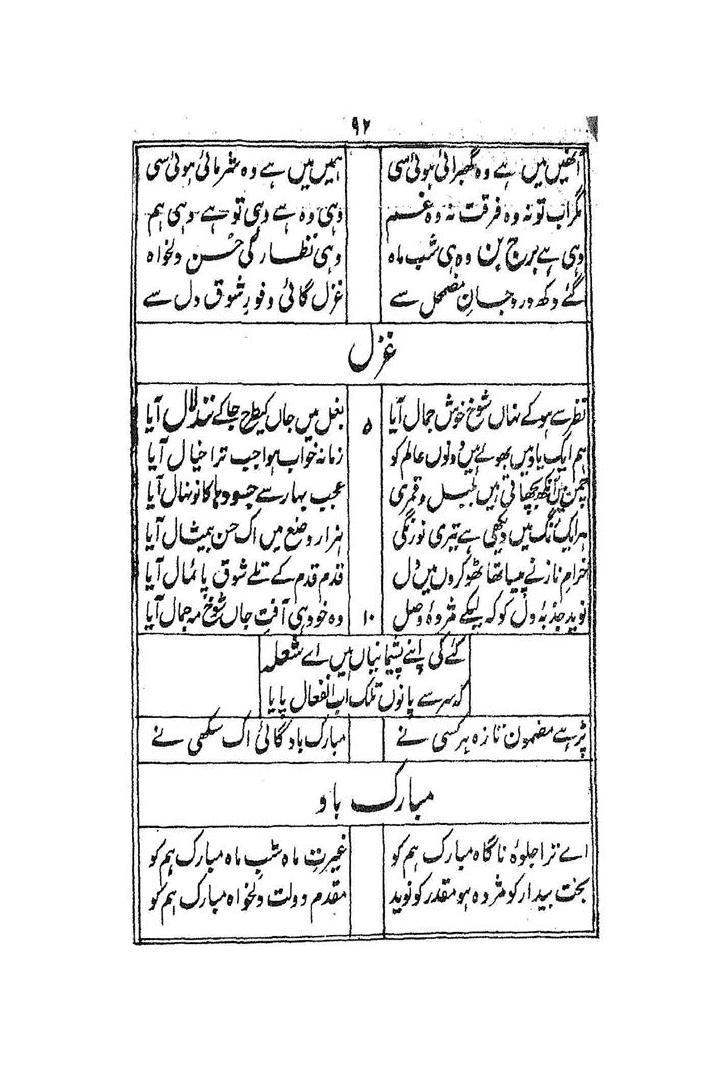 ۹۲
انھیں میں ہے وہ گھبرائی ہوئی سی ہمیں میں ہے وہ شرمائی ہوئی سی
مگر اب تو نہ وہ فرقت نہ وہ غم وہی وہ ہے وہی تو ہے وہی ہم
وہی ہے برج پن وہ ہی شب ماہ وہی نظارگی حسن دلخواہ
گئے دکھ درد جان مضمحل سے غزل گائی وفورِ شوق دل سے
غزل
نظر سے ہو کے نہاں شوخ خوش جمال آیا ۵ بغل میں جاں کیطرح جا کے تند لال آیا
ہم ایک یاد میں بھولے ہیں دونوں عالم کو زمانہ خواب ہوا جب ترا خیال آیا
چمن میں آنکھ بچھاتی ہیں بلبل و قمری عجب بہار سے جسودہا کا نونہال آیا
ہر ایک رنگ میں دیکھی ہے تیری نورنگی ہزار وضع میں اک حسن بیمثال آیا
خرام ناز نے پیسا تھا ٹھوکروں میں دل قدم قدم کے تلے شوق پائمال آیا
نوید جذبۂ دل کو کہ لیکے مژدۂ وصل ۱۰ وہ خود ہی آفتِ جاں شوخ مہ جمال آیا
گئے کی اپنے پشیمانیاں ہیں اے شعلہ
کہ سر سے پانوں تلک اب انفعال پایا
پڑہے مضمون تازہ ہر کسی نے مبارکباد گائی اک سکھی نے
مبارک باد
اے ترا جلوۂ ناگاہ مبارک ہم کو غیرتِ ماہ شبِ ماہ مبارک ہم کو
بخت بیدار کو مژدہ ہو مقدر کو نوید مقدم دولت دلخواہ مبارک ہم کو